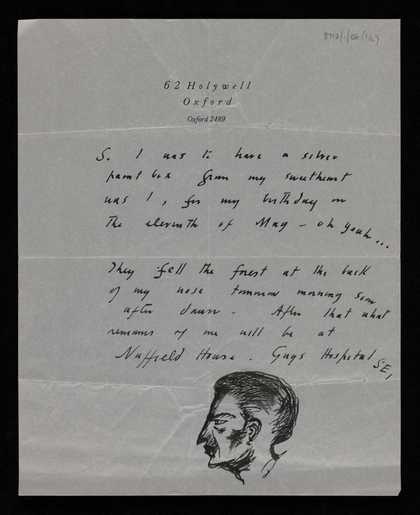 62 Holywell
Oxford
Oxford 2489
S. I was to have a silver
paint box from my sweetheart
was I, for my birthday on
the eleventh of May - oh yeah...
They fell the forest at the back
of my nose tomorrow morning soon
after dawn. After that what
remains of me will be at
Nuffield House. Guys Hospital SE1